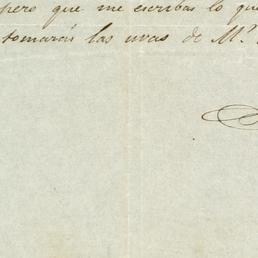 pero que me escribas lo que
tomarás las uvas de M.ª